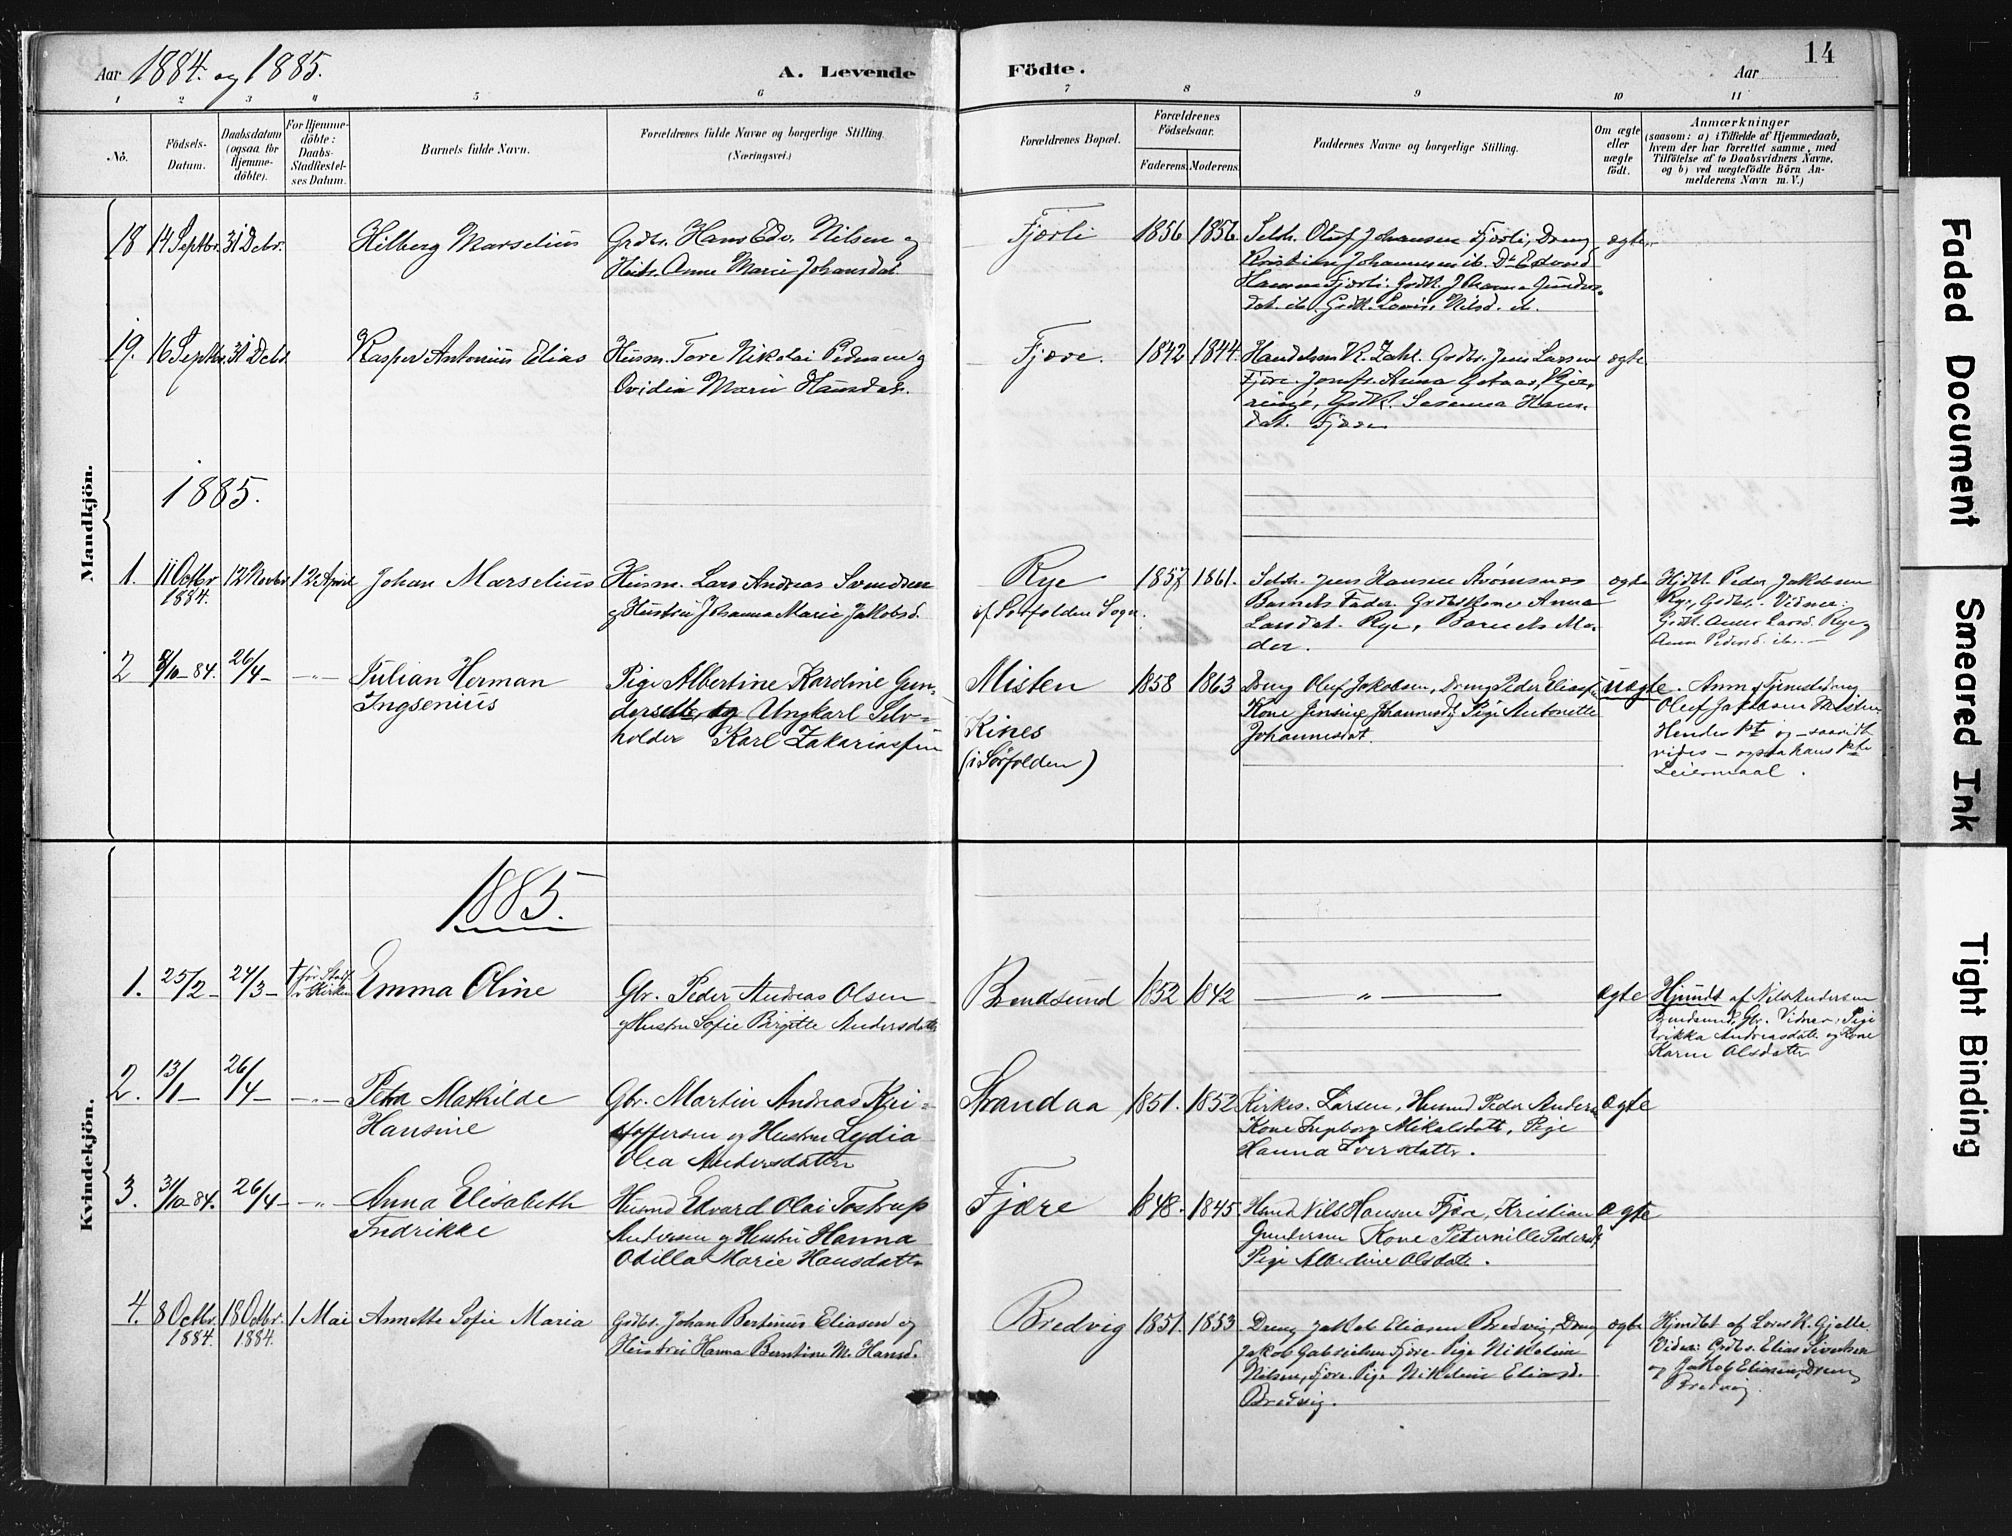 Aar 1884. og 1885.
A. Levende Födte.
Aar
14
1 2 3 4 5 6 7 8 9 10 11
No.
Födsels-
Datum.
Daabsdatum
(ogsaa for
Hjemme-
döbte).
For Hjemme-
döbte:
Daabs-
Stadfæstel-
ses Datum.
Barnets fulde Navn.
Forældrenes fulde Navne og borgerlige Stilling.
(Næringsvei.)
Forældrenes Bopæl.
Forældrenes
Födselsaar.
Faderens.
Moderens.
Faddernes Navne og borgerlige Stilling.
Om ægte
eller
uægte
födt.
Anmærkninger
(saasom: a) i Tilfælde af Hjemmedaab,
hvem der har forrettet samme, med
Tilföielse af to Daabsvidners Navne,
og b) ved uægtefödte Börn An-
melderens Navn m. V.)
Mandkjön.
18 14 Septbr. 31 Debr.
Hilberg Marselius
Grdbr. Hans Edv. Nilsen og
Hustr. Anne Marie Johansdat.
Fjærli
1856 1856
Seldr. Oluf Johansen Fjærli, Dreng
Kristian Johannesen ib. Edvard
Hansen Fjærli. Grdk. Johanna Gunders-
dat. ib. Grdk. Lovise Nilsd. ib.
ægte.
19. 16 Septbr. 31 Debr.
Kasper Antonius Elias
Husm. Tore Nikolai Pedersen og
Ovidia Marie Hansdat.
Fjære.
1842 1844.
Handelsm. K. Zahl. Grdbr. Jens Larsen
Fjære. Jomfr. Anna
Grdk. Susanna Hans-
dat. Fjære
ægte
1885.
1. 11 Octbr 1884. 12 Novbr 12 April
Johan Marselius
Husm. Lars Andreas Svendsen
og Hustru Johanna Marie Jakobsd.
Rye
af Sörfolden Sogn.
1857 1861.
Seldr. Jens Hansen
Barnets Fader. Grdbr.kone Anna
Larsdat. Rye, Barnets Mo-
der.
ægte
Hjdbt. Peder Jakobsen
Rye, Grdbr. Vidner:
Grdk. Anne Larsd. Rye og
Anna Pedersd. ib.
2 8/10-84. 26/4- -"-
Julian Herman
Ingsenius
Pige Albertine Karoline Gun-
dersdtr og Ungkarl Selv-
holder Karl Zakariassen
Misten
Kines
(i Sörfolden)
1858 1863
Dreng Oluf Jakobsen, Dreng Peder Eliassen
Kone Jensine Johannesd. Pige Antonette
Johannesdat.
uægte.
Anm. af
Oluf Jakobsen Misten
Hendes 1ste og - saavidt
vides - ogsaa hans 1ste
Leiermaal.
Kvindekjön.
1885.
1. 25/2- 24/3- † för Stadf. i Kirken
Emma Oline
Gbr. Peder Andreas Olsen
og Hustru Sofie Birgitte Andersdatter
Bendsund
1852 1842
— " —
ægte
Hjemdt af Nils Andersen
Bendsund, Gbr. Vidner: Pige
Andreasdatr og Kone
Karen Olsdatter
2. 13/1- 26/4- -"-
Petra Mathilde
Hansine
Gbr. Martin Andreas Kri-
stoffersen og Hustru Lydia
Olea Andersdatter
Strandaa
1851. 1852
Kirkes. Larsen, Husmd Peder Anders.
Kone Ingborg Mikalsdatt, Pige
Hanna Iversdatter.
ægte
3. 31/10-84. 26/4- -"-
Anna Elisabeth
Fredrikke
Husmd Edvard Olai Tostrup
Andersen og Hustru Hanna
Odilla Marie Hansdatter
Fjære
1848. 1845.
Husmd Nils Hansen Fjære, Kristian
Gundersen Kone Peternille Pedersd
Pige Albertine Olsdatr.
ægte
4. 8 Octbr. 1884. 18 Octbr. 1884. 1 Mai
Annette Sofie Maria
Grdbr. Johan Bertinus Eliasen og
Hustru Hanna Berntine M. Hansd.
Bredvig
1851. 1853.
Dreng Jakob Eliasen Bredvig, Dreng
Jakob Gabrielsen Fjære. Pige Nikoline
Nilsen, Fjære. Pige Nikoline Eliasd.
Bredvig.
ægte
Hjemdbt af K. Gjelle.
Vidner: Grdbr. Elias Sivertsen
og Jakob Eliasen, Dreng
Bredvig.
Faded Document
Smeared Ink
Tight Binding